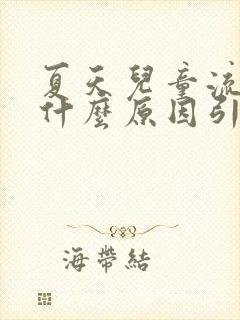 夏天兒童流
什麼原因引
海帶結